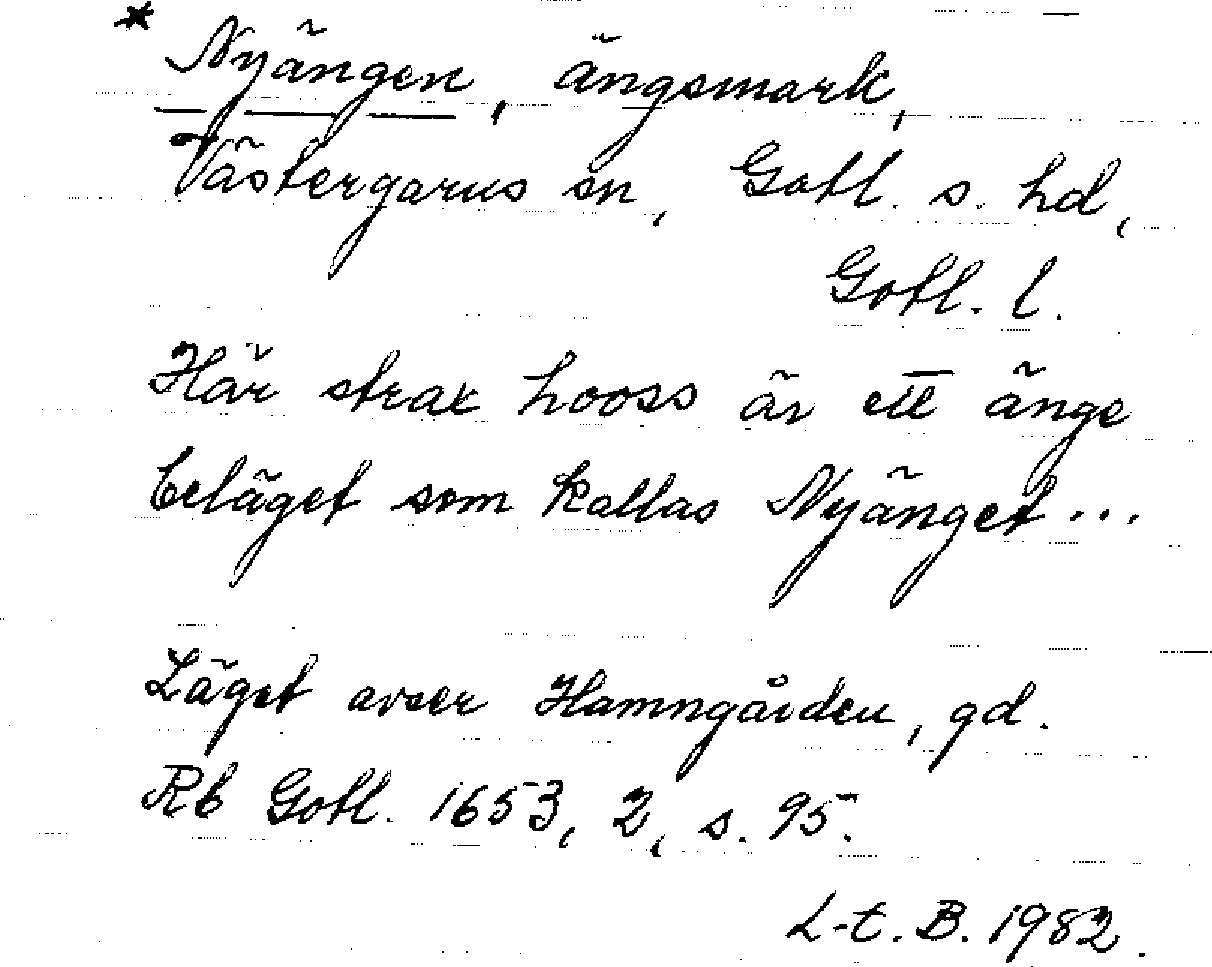 * Nyängen, ängsmark,
Västergarns sn, Gotl. s. hd,
Gotl. l.
Här strax hooss är ett änge
beläget som kallas Nyänget ...
Läget avser Hamngården, gd.
Rb Gotl. 1653, 2, s. 95.
L-t. B. 1982.